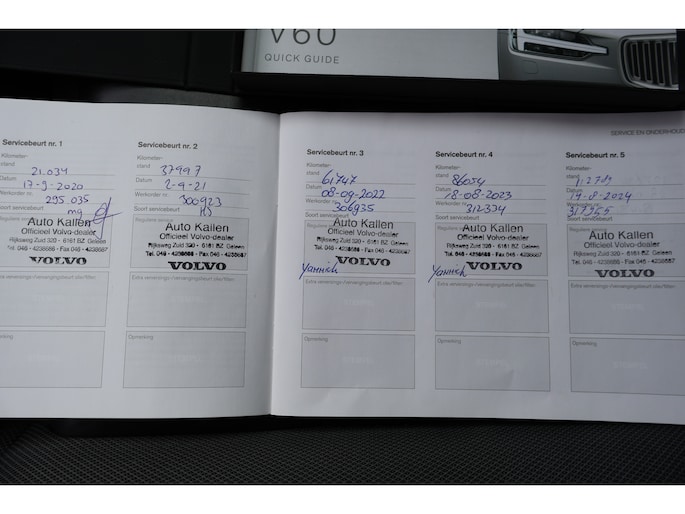 V60
QUICK GUIDE
SERVICE EN ONDERHOUD
Servicebeurt nr. 1
Kilometer-
stand 21.034
Datum 17-9-2020
Werkorder nr. 295.035
Soort servicebeurt mg
Reguliere service
Auto Kallen
Officieel Volvo-dealer
Rijksweg Zuid 320 - 6161 BZ Geleen
Tel. 046 - 4238686 - Fax 046 - 4238687
VOLVO
Extra verversings-/vervangingsbeurt olie/filters
Opmerking
Servicebeurt nr. 2
Kilometer-
stand 37997
Datum 2-9-21
Werkorder nr. 300923
Soort servicebeurt
Reguliere service
Auto Kallen
Officieel Volvo-dealer
Rijksweg Zuid 320 - 6161 BZ Geleen
Tel. 046 - 4238686 - Fax 046 - 4238687
VOLVO
Extra verversings-/vervangingsbeurt olie/filters
Opmerking
Servicebeurt nr. 3
Kilometer-
stand 61747
Datum 08-09-2022
Werkorder nr. 306935
Soort servicebeurt
Reguliere service
Auto Kallen
Officieel Volvo-dealer
Rijksweg Zuid 320 - 6161 BZ Geleen
Tel. 046 - 4238686 - Fax 046 - 4238687
VOLVO
Yannick
Extra verversings-/vervangingsbeurt olie/filters
Opmerking
Servicebeurt nr. 4
Kilometer-
stand 86054
Datum 18-08-2023
Werkorder nr. 312334
Soort servicebeurt
Reguliere service
Auto Kallen
Officieel Volvo-dealer
Rijksweg Zuid 320 - 6161 BZ Geleen
Tel. 046 - 4238686 - Fax 046 - 4238687
VOLVO
Yannick
Extra verversings-/vervangingsbeurt olie/filters
Opmerking
Servicebeurt nr. 5
Kilometer-
stand
Datum 19-8-2024
Werkorder nr.
Soort servicebeurt
Reguliere service
Auto Kallen
Officieel Volvo-dealer
Rijksweg Zuid 320 - 6161 BZ Geleen
Tel. 046 - 4238686 - Fax 046 - 4238687
VOLVO
Extra verversings-/vervangingsbeurt olie/filters
Opmerking